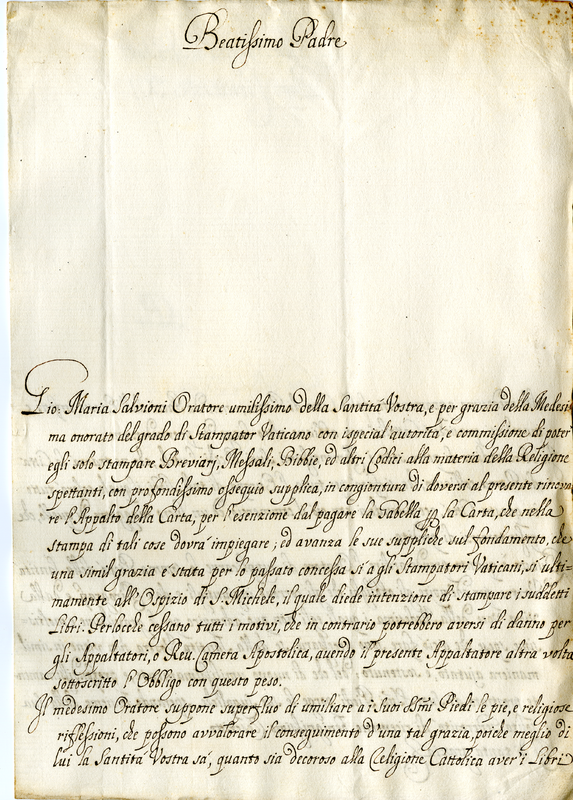 Beatissimo Padre
Gio: Maria Salvioni Oratore umilissimo della Santità Vostra, e per grazia della Medesi-
ma onorato del grado di Stampator Vaticano con ispecial'autorità, e commissione di poter
egli solo stampare Breviarj, Messali, Bibbie, ed altri Codici alla materia della Religione
spettanti, con profondissimo ossequio supplica, in congiontura di doversi al presente rinova-
re l'Appalto della Carta, per l'esenzione dal pagare la Gabella p la Carta, che nella
stampa di tali cose dovrà impiegare; ed avanza le sue suppliche sul fondamento, che
una simil grazia è stata per lo passato concessa sì agli Stampatori Vaticani, sì ulti-
mamente all'Ospizio di S. Michele, il quale diede intenzione di stampare i suddetti
Libri. Perlocche cessano tutti i motivi, che in contrario potrebbero aversi di danno per
gli Appaltatori, o Reu. Camera Apostolica, auendo il presente Appaltatore altra volta
sottoscritto l'Obbligo con questo peso.
Il medesimo Oratore suppone superfluo di umiliare a i suoi SSmi Piedi le pie, e religiose
riflessioni, che possono avvalorare il conseguimento d'una tal grazia, poiche meglio di
lui la Santità Vostra sà, quanto sia decoroso alla Religione Cattolica aver'i Libri